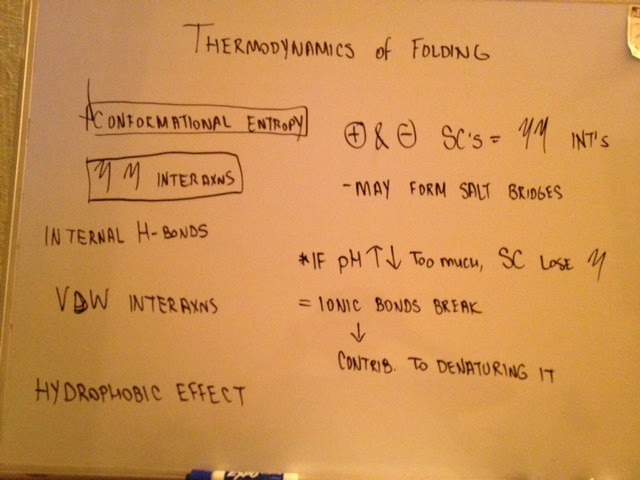 THERMODYNAMICS of FOLDING
CONFORMATIONAL ENTROPY
INTERAXNS
INTERNAL H-BONDS
VDW INTERAXNS
HYDROPHOBIC EFFECT
⊕ & ⊖ SC'S = INT'S
- MAY FORM SALT BRIDGES
*IF pH ↑↓ TOO MUCH, SC LOSE
= IONIC BONDS BREAK
↓
CONTRIB. TO DENATURING IT
EXPO